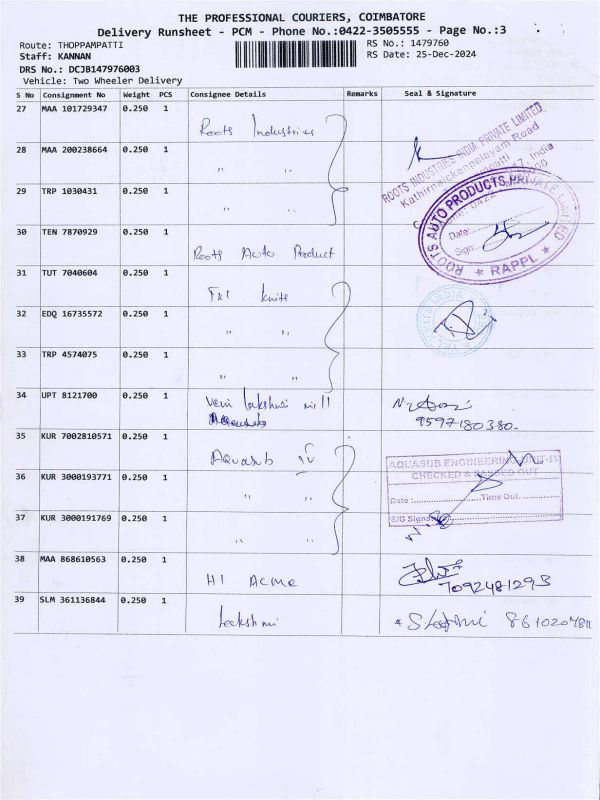 THE PROFESSIONAL COURIERS, COIMBATORE
Delivery Runsheet - PCM - Phone No.:0422-3505555 - Page No.:3
Route: THOPPAMPATTI
RS No.: 1479760
Staff: KANNAN
RS Date: 25-Dec-2024
DRS No.: DCJB147976003
Vehicle: Two Wheeler Delivery
S No Consignment No Weight PCS Consignee Details Remarks Seal & Signature
27 MAA 101729347 0.250 1 Roots Industries
28 MAA 200238664 0.250 1 " "
29 TRP 1030431 0.250 1 " "
ROOTS INDUSTRIES INDIA PRIVATE LIMITED,
Road
India
ROOTS AUTO PRODUCTS PRIVATE LIMITED
Date:
Sign:
★ RAPPL ★
30 TEN 7870929 0.250 1 Roots Auto Product
31 TUT 7040604 0.250 1 knits
32 EDQ 16735572 0.250 1 " "
33 TRP 4574075 0.250 1 " "
34 UPT 8121700 0.250 1 Veni lakshmi mill
9597180380
35 KUR 7002810571 0.250 1 Aquasub IV
36 KUR 3000193771 0.250 1 " "
37 KUR 3000191769 0.250 1 " "
AQUASUB ENGINEERING UNIT-IV
CHECKED & PASSED OUT
Date : Time Out
S/G Signature
38 MAA 868610563 0.250 1 HI ACME
7092481293
39 SLM 361136844 0.250 1 Lakshmi